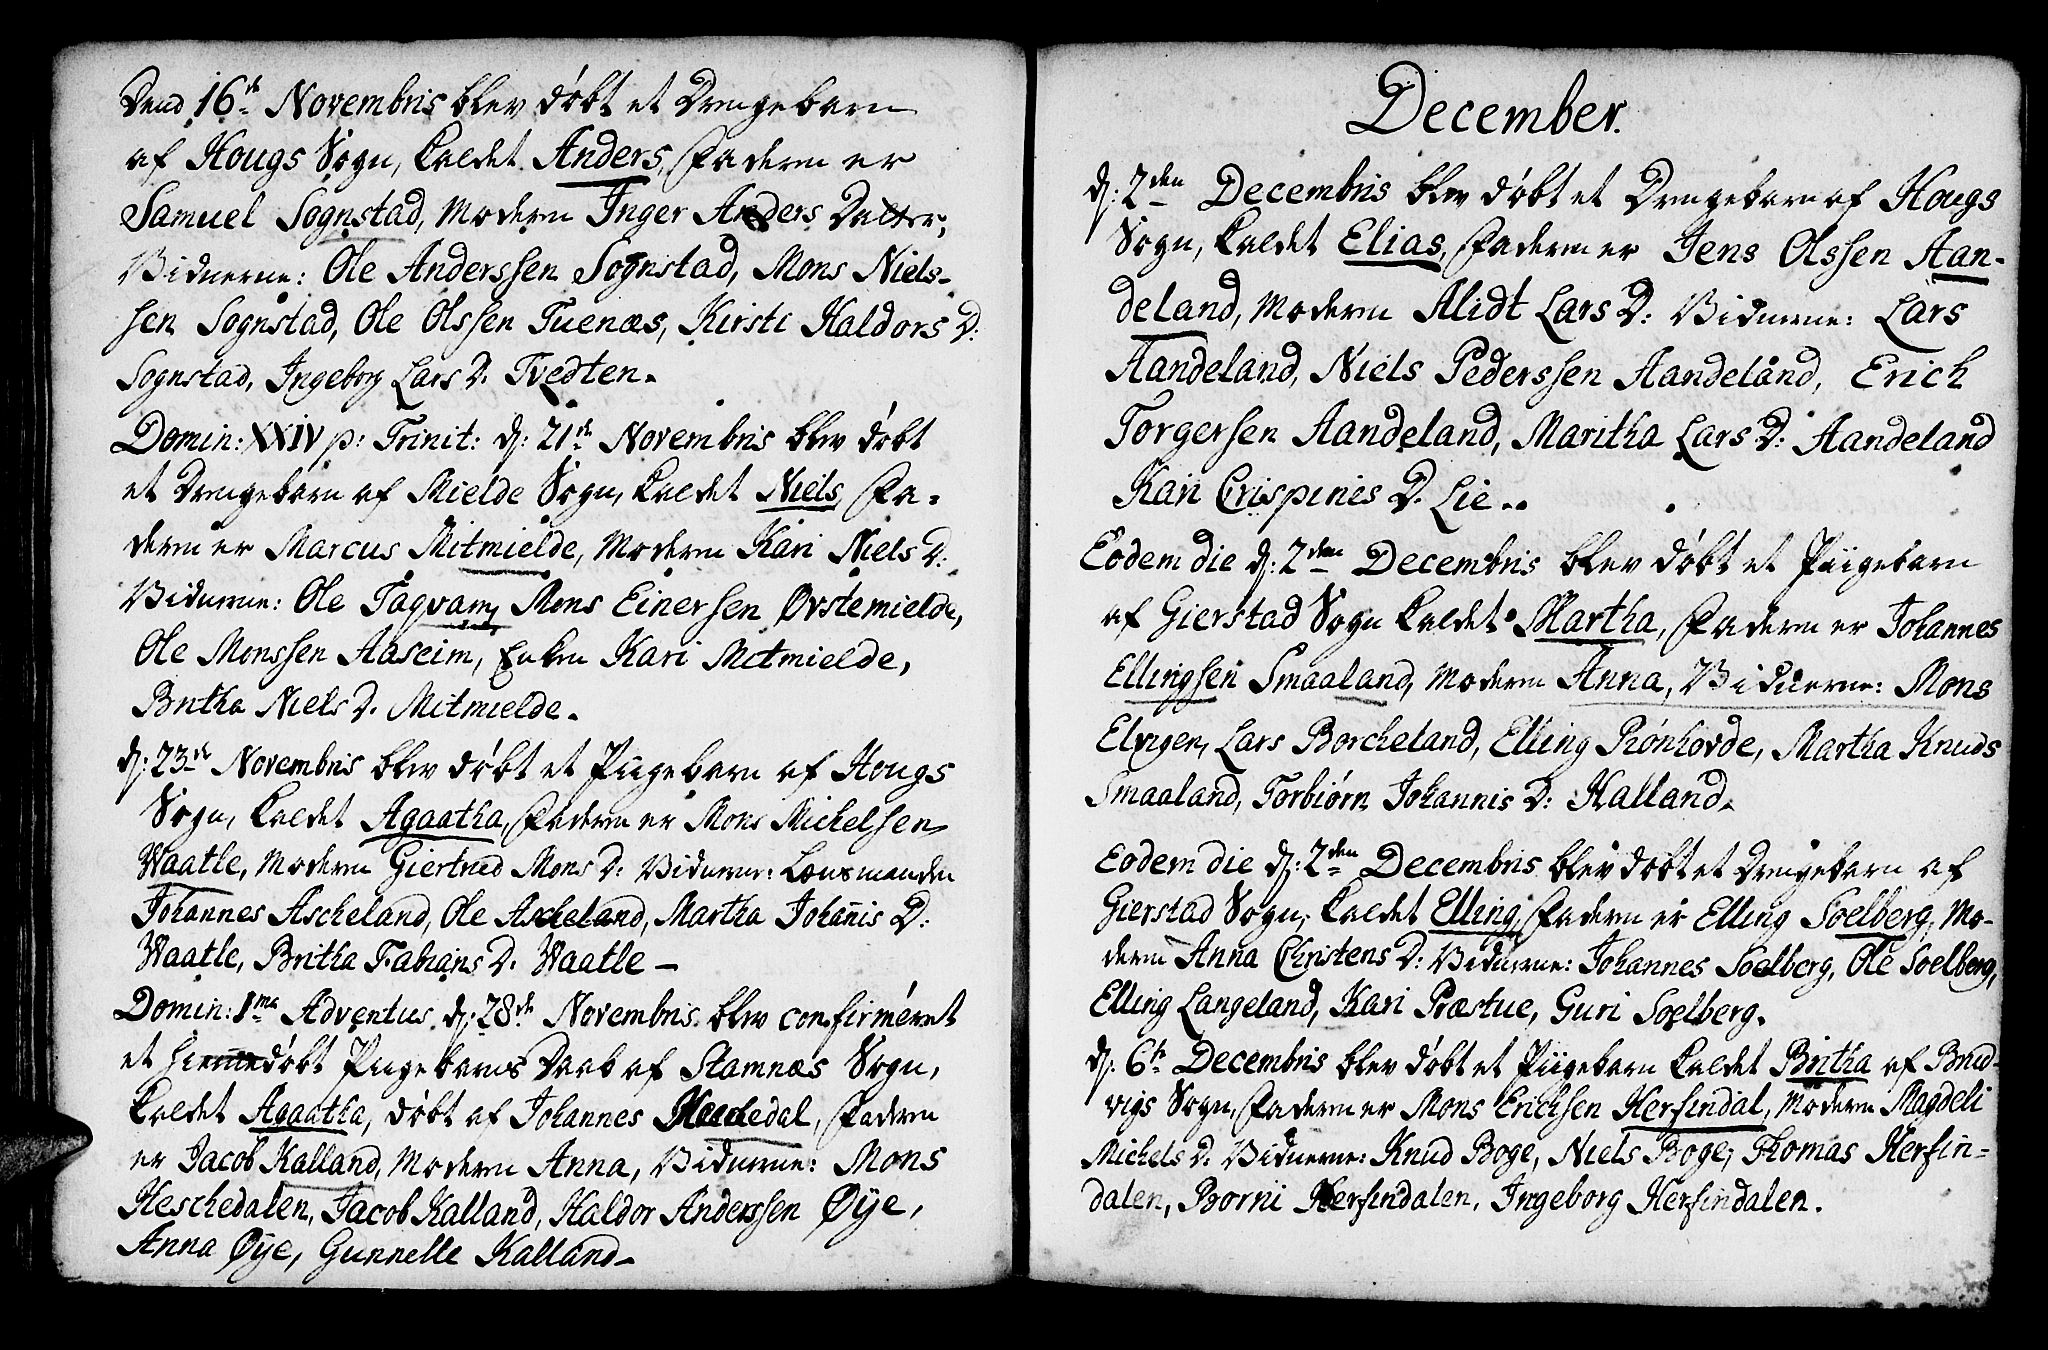 Dend 16de Novembris blev døbt et Drengebarn
af Hougs Sogn, kaldet Anders, Faderen er
Samuel Sognstad, Moderen Inger Anders Datter,
Vidnerne: Ole Anderssen Sognstad, Mons Niels-
sen Sognstad, Ole Olssen Tuenæs, Kirsti Haldors D:
Sognstad, Ingeborg Lars D. Tvedten.
Domin: XXIV p: Trinit: d: 21de Novembris blev døbt
et Drengebarn af Mielde Sogn, kaldet Niels, Fa-
deren er Marcus Mitmielde, Moderen Kari Niels D:
Vidnerne: Ole Taqvam, Mons Einersen Øvstemielde,
Ole Monssen Aaseim, Enken Kari Mitmielde,
Britha Niels D. Mitmielde.
d: 23de Novembris blev døbt et Piigebarn af Hougs
Sogn, kaldet Agaatha, Faderen er Mons Michelsen
Waatle, Moderen Giertrud Mons D: Vidnerne: Lensmanden
Johannes Ascheland, Ole Ascheland, Martha Johanis D:
Waatle, Britha Fabians D. Waatle —
Domin: 1ma Adventus d: 28de Novembris blev confirméret
et hiemmedøbt Piigebarns Daab af Stamnæs Sogn,
kaldet Agaatha, døbt af Johannes Heschedal, Faderen
er Jacob Kalland, Moderen Anna, Vidnerne: Mons
Heschedalen, Jacob Kalland, Haldor Anderssen Øye,
Anna Øye, Gunnelle Kalland —
December.
d: 2den Decembris blev døbt et Drengebarn af Hougs
Sogn, kaldet Elias, Faderen er Jens Olssen Aan-
deland, Moderen Alidt Lars D: Vidnerne: Lars
Aandeland, Niels Pederssen Aandeland, Erich
Torgersen Aandeland, Maritha Lars D: Aandeland
Kari Crispines D. Lie..
Eodem die d: 2den Decembris blev døbt et Piigebarn
af Gierstad Sogn kaldet Martha, Faderen er Johannes
Ellingsen Smaaland, Moderen Anna, Vidnerne: Mons
Elvigen, Lars Borcheland, Elling Rónhovde, Martha Knuds
Smaaland, Torbiørn Johannis D: Halland.
Eodem die d: 2den Decembris blev døbt et Drengebarn af
Gierstad Sogn, kaldet Elling, Faderen er Elling Soelberg, Mo-
deren Anna Christens D: Vidnerne: Johannes Soelberg, Ole Soelberg,
Elling Langeland, Kari Præstue, Guri Soelberg.
d: 6te Decembris blev døbt et Piigebarn kaldet Britha af Brud-
vigs Sogn, Faderen er Mons Erichsen Herfindal, Moderen Magdeli
Michels D. Vidnerne: Knud Boge, Niels Boge, Thomas Herfin-
dalen, Borni Herfindalen, Ingeborg Herfindalen.